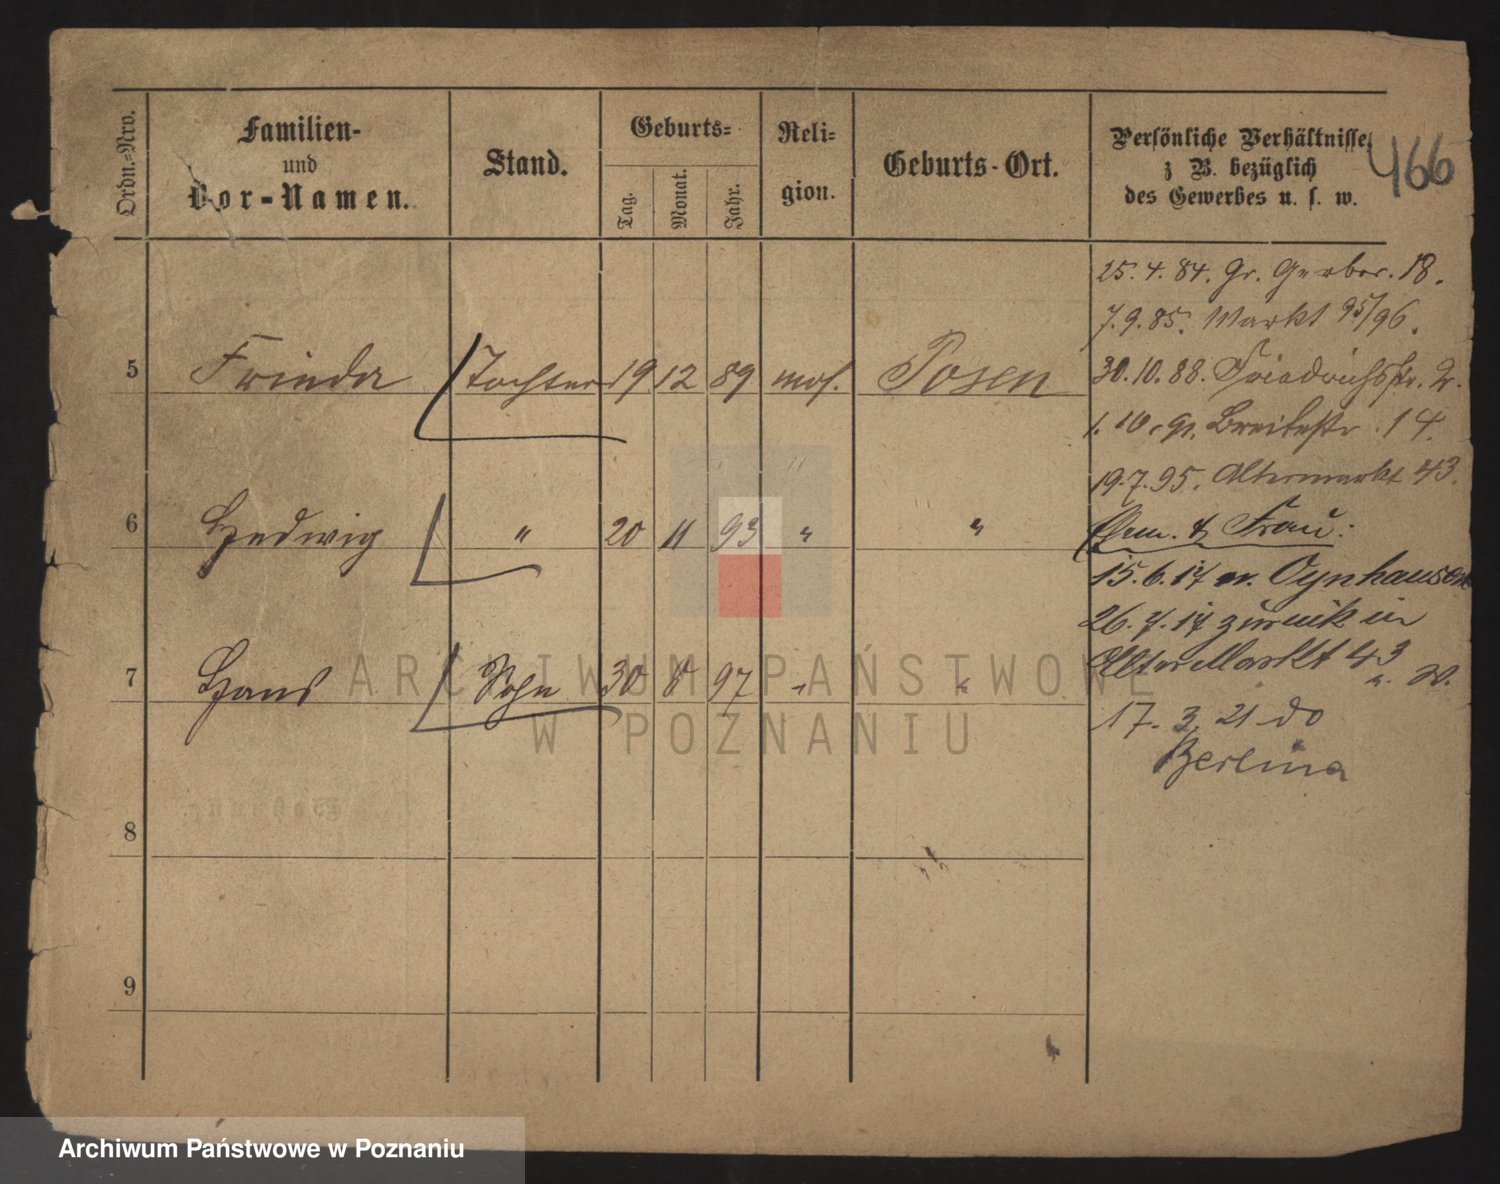 466
Ordn.=Nro.
Familien-
und
Vor-Namen.
Stand.
Geburts=
Tag.
Monat.
Jahr.
Reli=
gion.
Geburts-Ort.
Persönliche Verhältnisse
z B. bezüglich
des Gewerbes u. s. w.
5 Frieda Tochter 19 12 89 mos. Posen
6 Hedwig " 20 11 93 " "
7 Hans Sohn 30 8 97 " "
8
9
25. 4. 84. Gr. Gerber. 18.
7. 9. 85. Markt 95/96.
30. 10. 88. Friedrichstr. 2.
1. 10. 91. Breitestr. 14.
19. 7. 95. Altermarkt 43.
Ehm. & Frau:
15. 6. 17 n. Oynhausen
26. 7. 17 zurück in
Alter Markt 43
17. 3. 21 do
Berlina
ARCHIWUM PAŃSTWOWE
W POZNANIU
Archiwum Państwowe w Poznaniu